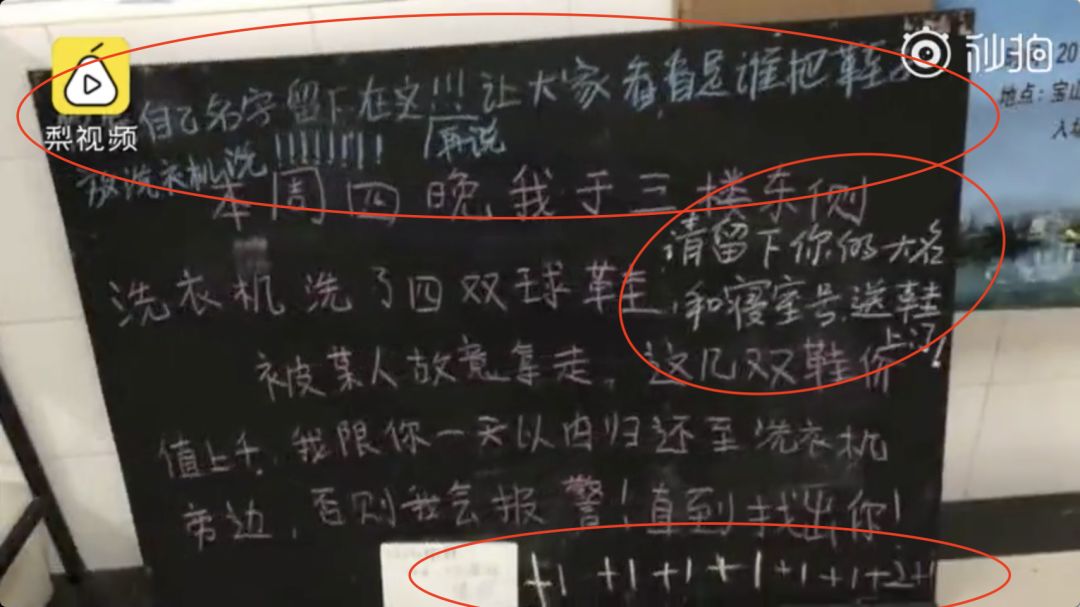 自己名字留下在这!!!让大家看看是谁把鞋
放洗衣机洗!!!!!!!!! 再说
本周四晚我于三楼东侧
洗衣机洗了四双球鞋,
被某人故意拿走,这几双鞋价
值上千,我限你一天以内归还至洗衣机
旁边,否则我会报警!直到找出你!
请留下你的大名
和寝室号,送鞋
上门!
+1 +1 +1 +1 +1 +1 +2 +1
梨视频
秒拍
20
地点:宝山
入场